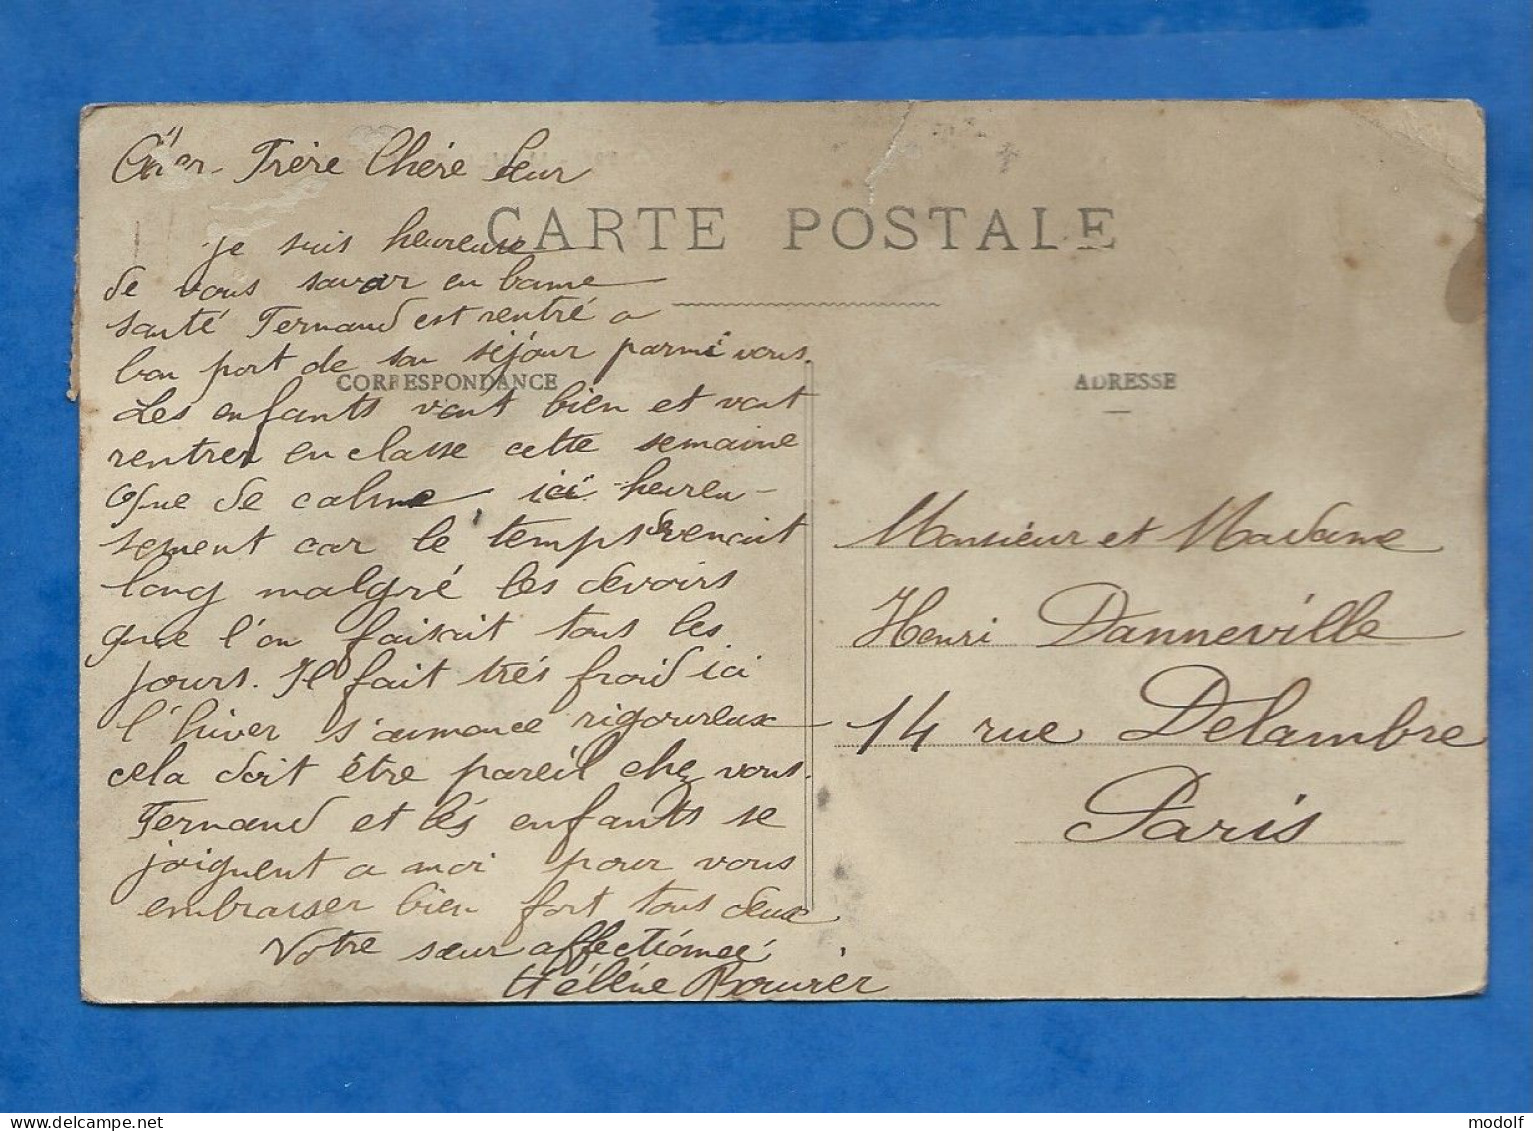 Cher Frère Chère Seur
CARTE POSTALE
je suis heureuse
de vous savoir en bonne
santé Fernand est rentré a
bon port de son séjour parmi vous.
CORRESPONDANCE
Les enfants vont bien et vont
rentrer en classe cette semaine
Que de calme, ici heureu-
sement car le temps devenait
long malgré les devoirs
que l'on faisait tous les
jours. Il fait très froid ici
l'hiver s'annonce rigoureux
cela doit être pareil chez vous.
Fernand et les enfants se
joignent a moi pour vous
embrasser bien fort tous deux
Votre sœur affectionnée
Hélène Bouvier
ADRESSE
Monsieur et Madame
Henri Danneville
14 rue Delambre
Paris
delcampe.net
modolf